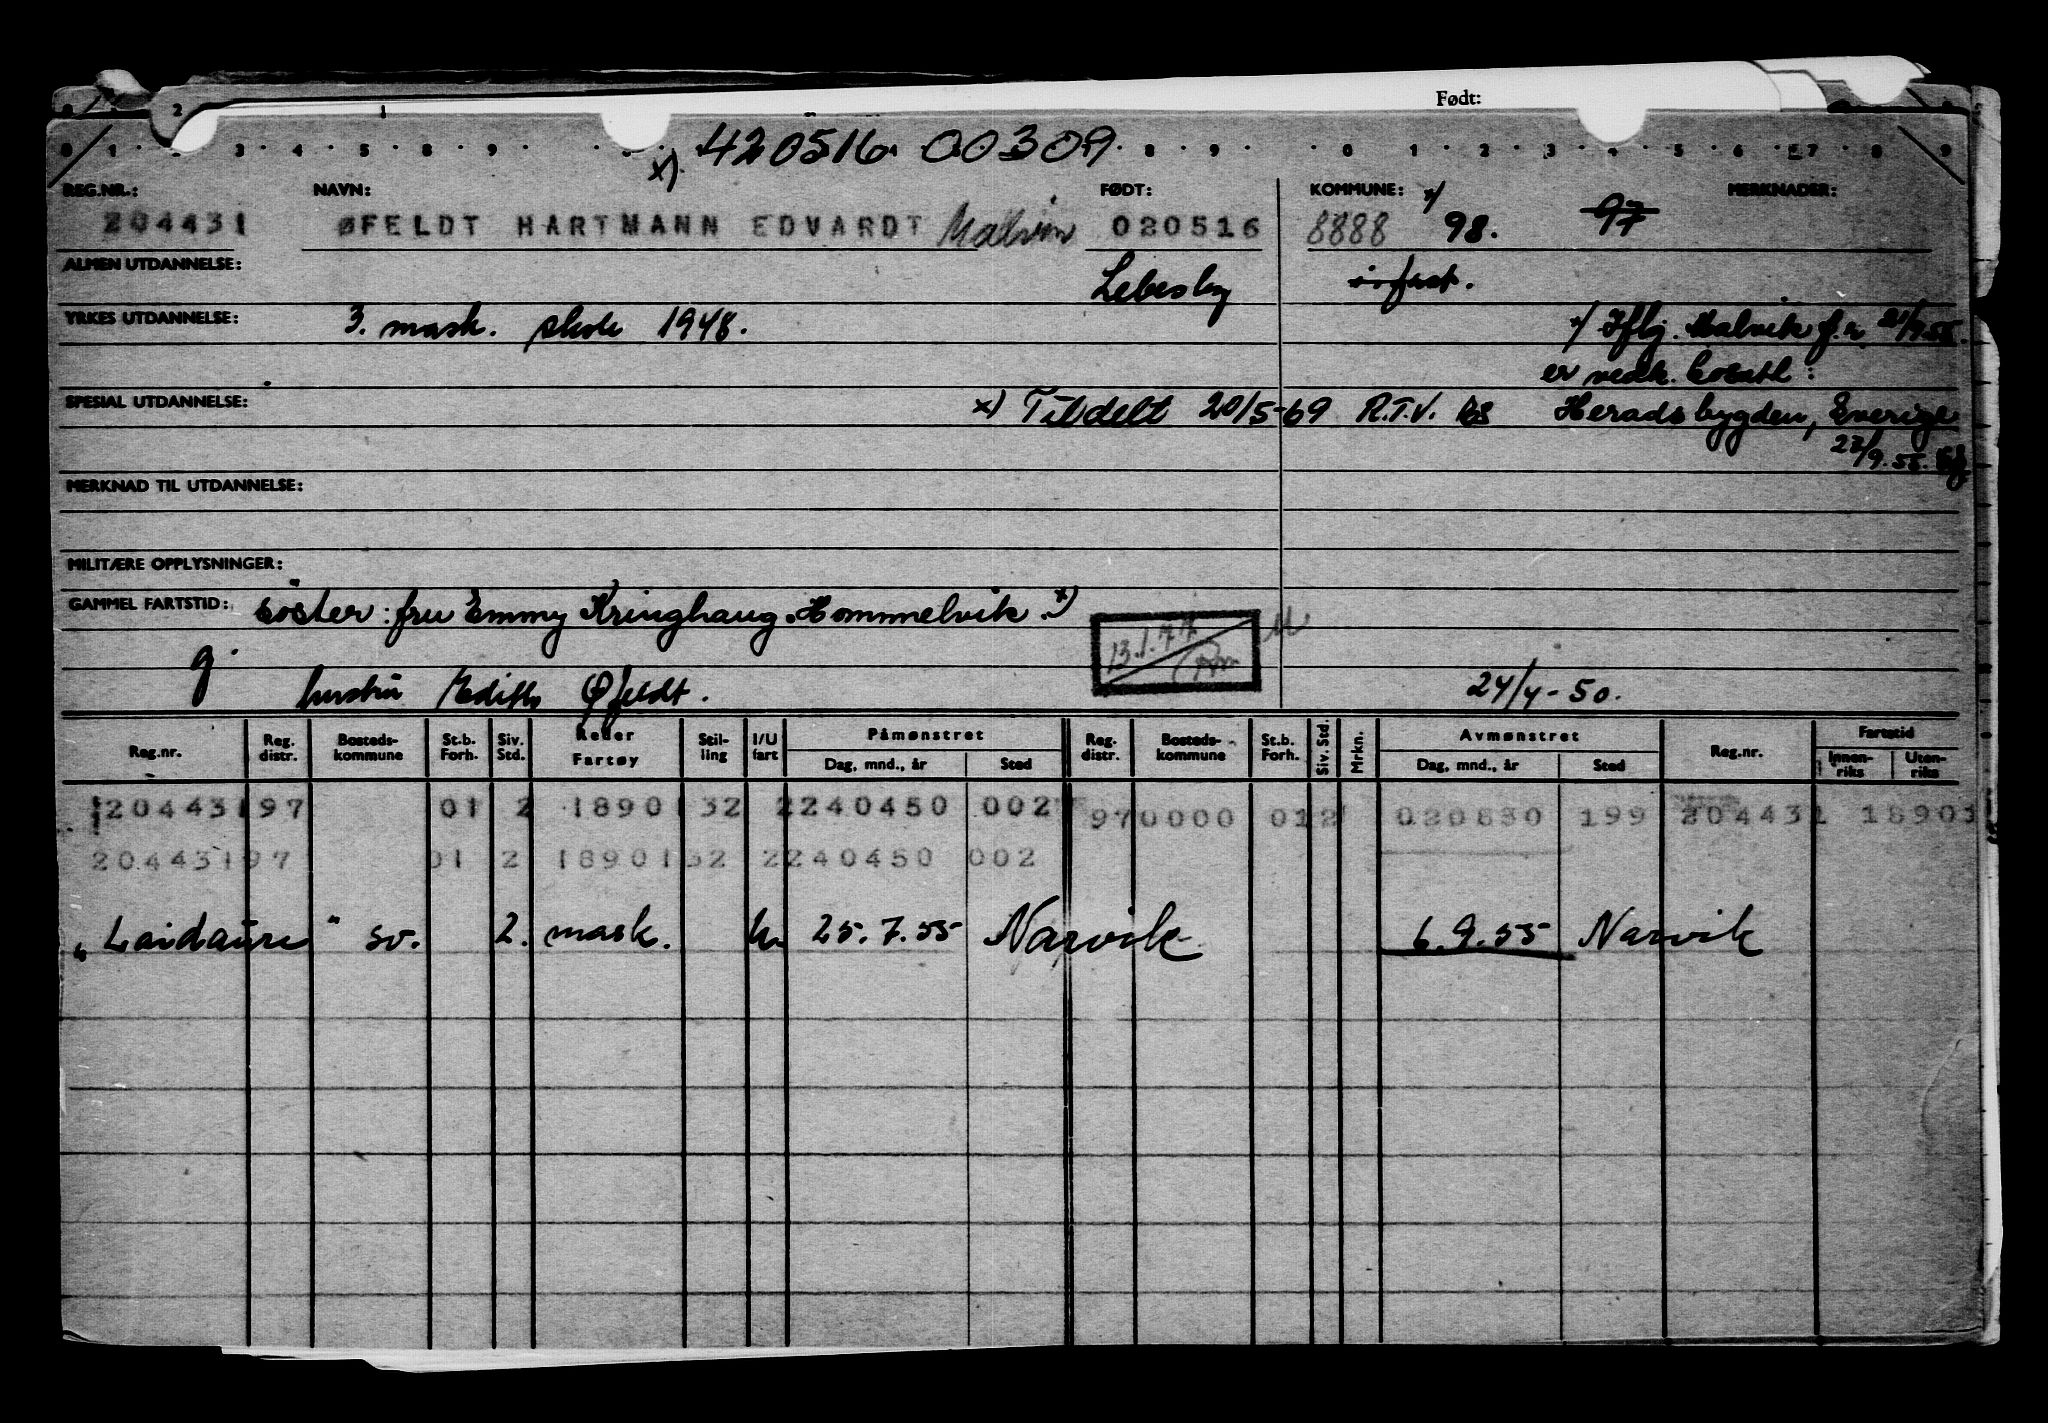 Født:
0 2 1
0 1 2 3 4 5 8 9 8 9 0 1 2 3 4 5 6 7 8 9
x) 420516 00309
REG.NR.: NAVN: FØDT: KOMMUNE: MERKNADER:
204431 ØFELDT HARTMANN EDVARDT 020516 8888 x/ 98. 97
ALMEN UTDANNELSE: Lebesby
YRKES UTDANNELSE: 3. mask. skole 1948. x/ Iflg. Malvik f.r. 21/9.55.
er vedk. bosatt:
SPESIAL UTDANNELSE: x) Tildelt 20/5-69 R.T.V. Heradsbygden, Sverige
22/9.55.
MERKNAD TIL UTDANNELSE:
MILITÆRE OPPLYSNINGER:
GAMMEL FARTSTID: søster: fru Emmy Kringhaug. Hommelvik. x)
13.1.77
g. hustru Edith Øfeldt. 24/4-50.
Reg.nr. Reg. distr. Bosteds-kommune St.b. Forh. Siv. Std. Reder Fartøy Stil-ling I/U fart Påmønstret Dag, mnd., år Sted Reg. distr. Bosteds-kommune St.b. Forh. Siv. Std. Mrkn. Avmønstret Dag, mnd., år Sted Reg.nr. Fartstid Innen-riks Uten-riks
204431 97 01 2 1890 132 2240450 002 970000 012 020830 199 204431 18901
204431 97 01 2 1890132 2240450 002
"Laidaure" sv. 2. mask. u. 25.7.55 Narvik 6.9.55 Narvik